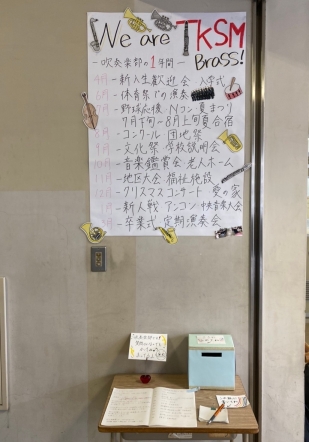 We are TKSM
Brass!
-吹奏楽部の1年間-
4月-新入生歓迎会 入学式
6月-体育祭での演奏
7月-野球応援 Nコン 夏まつり
7月下旬〜8月上旬 夏合宿
月-コンクール 団地祭
9月-文化祭 学校説明会
10月-音楽鑑賞会 老人ホーム
11月-地区大会 福祉施設
12月-クリスマスコンサート 愛の家
月-新人戦 アンコン 中央音楽大会
月-卒業式 定期演奏会